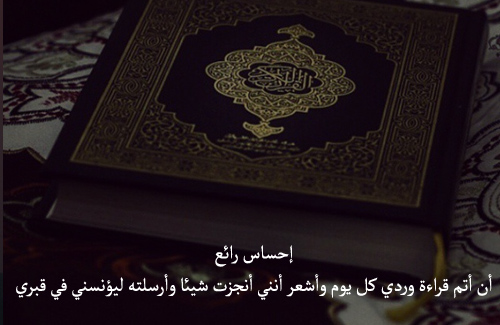 إحساس رائع
أن أتم قراءة وردي كل يوم وأشعر أنني أنجزت شيئا وأرسلته ليؤنسني في قبري